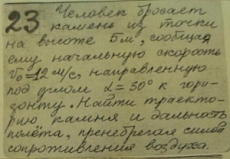 23 Человек бросает
камень из точки
на высоте 5м, сообщая
ему начальную скорость
V₀=12м/с, направленную
под углом α = 30° к гори-
зонту. Найти траекто-
рию камня и дальность
полёта, пренебрегая силой
сопротивления воздуха.